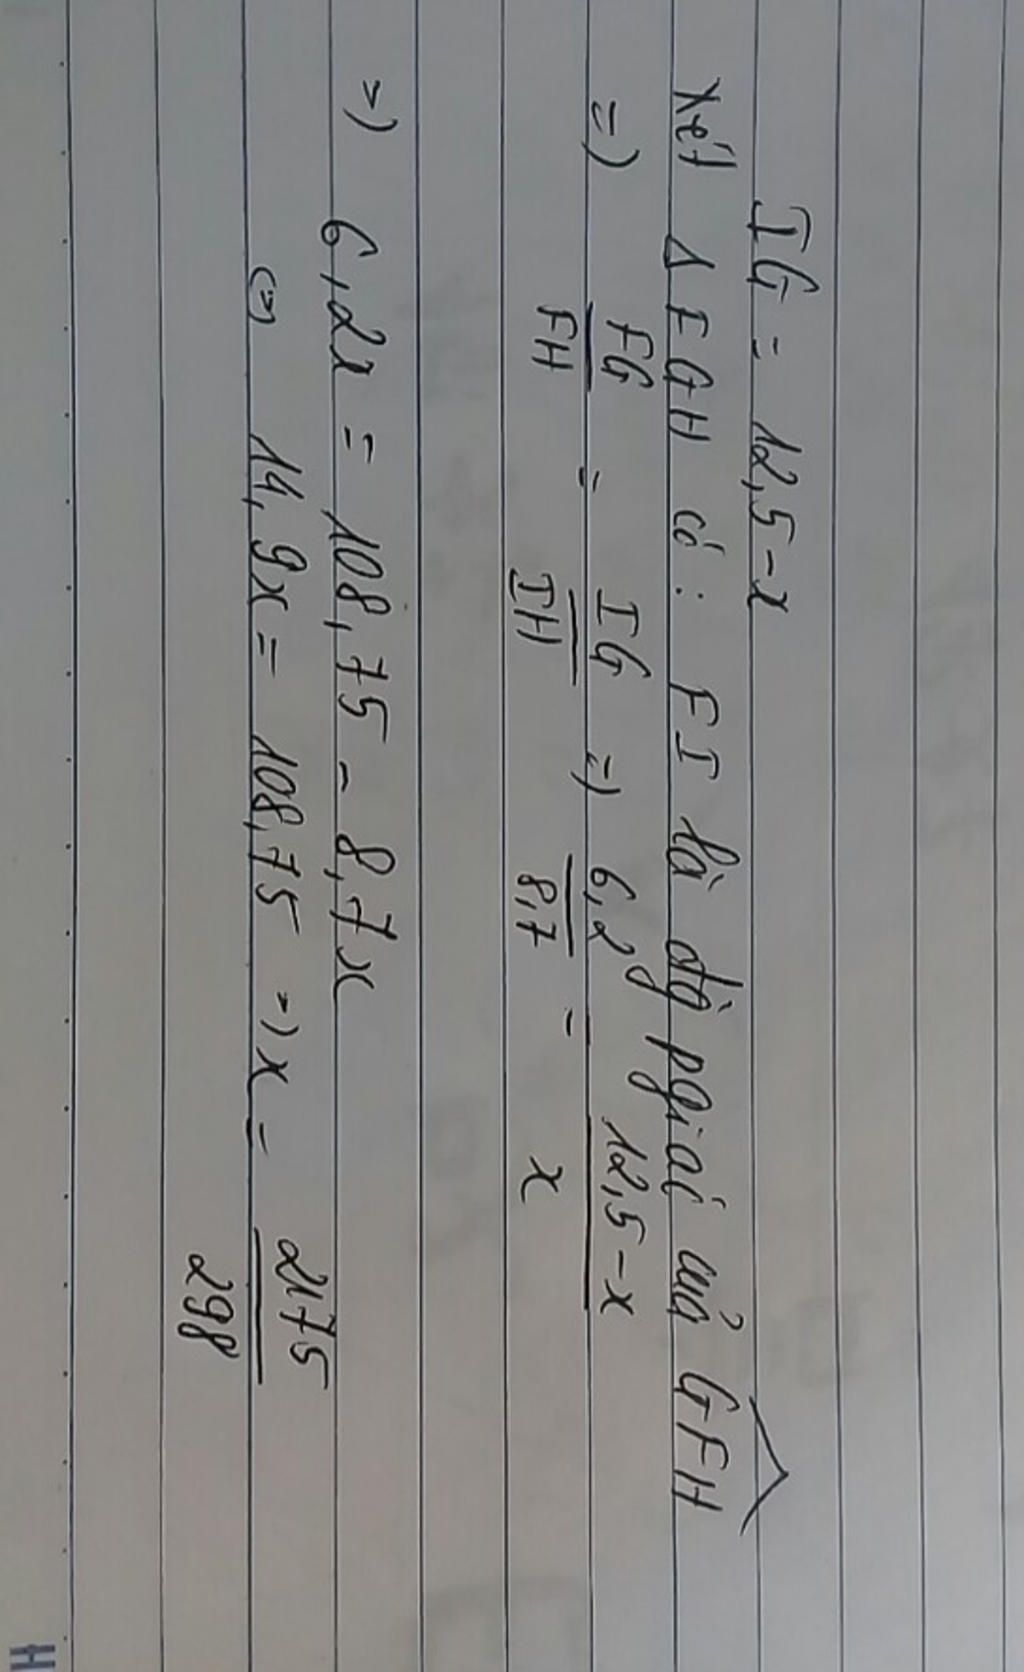 IG = 12,5-x
Xét Δ FGH có: FI là đg pgiác của GFH
=> FG/FH = IG/IH => 6,2/8,7 = 12,5-x/x
=> 6,2x = 108,75 - 8,7x
<=> 14,9x = 108,75 => x = 2175/298
H